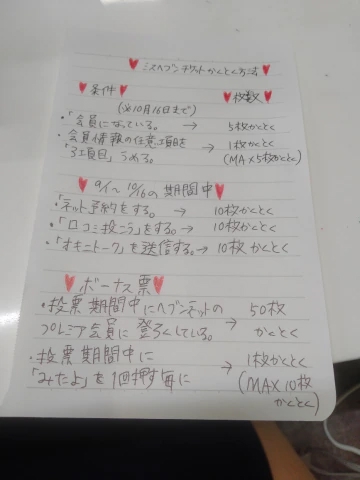 ミスヘブンチケットかくとく方法
条件 枚数
(※10月16日まで)
・「会員になっている。 → 5枚かくとく
・会員情報の任意項目を → 1枚かくとく
「3項目」うめる。 (MAX5枚かくとく)
9/1〜10/16の期間中
・「ネット予約をする。 → 10枚かくとく
・「口コミ投こう」をする。→ 10枚かくとく
・「オキニトーク」を送信する。→ 10枚かくとく
ボーナス票
・投票期間中にヘブンネットの → 50枚
プレミア会員に登ろくしている。 かくとく
・投票期間中に → 1枚かくとく
「みたよ」を1回押す毎に (MAX10枚
かくとく)